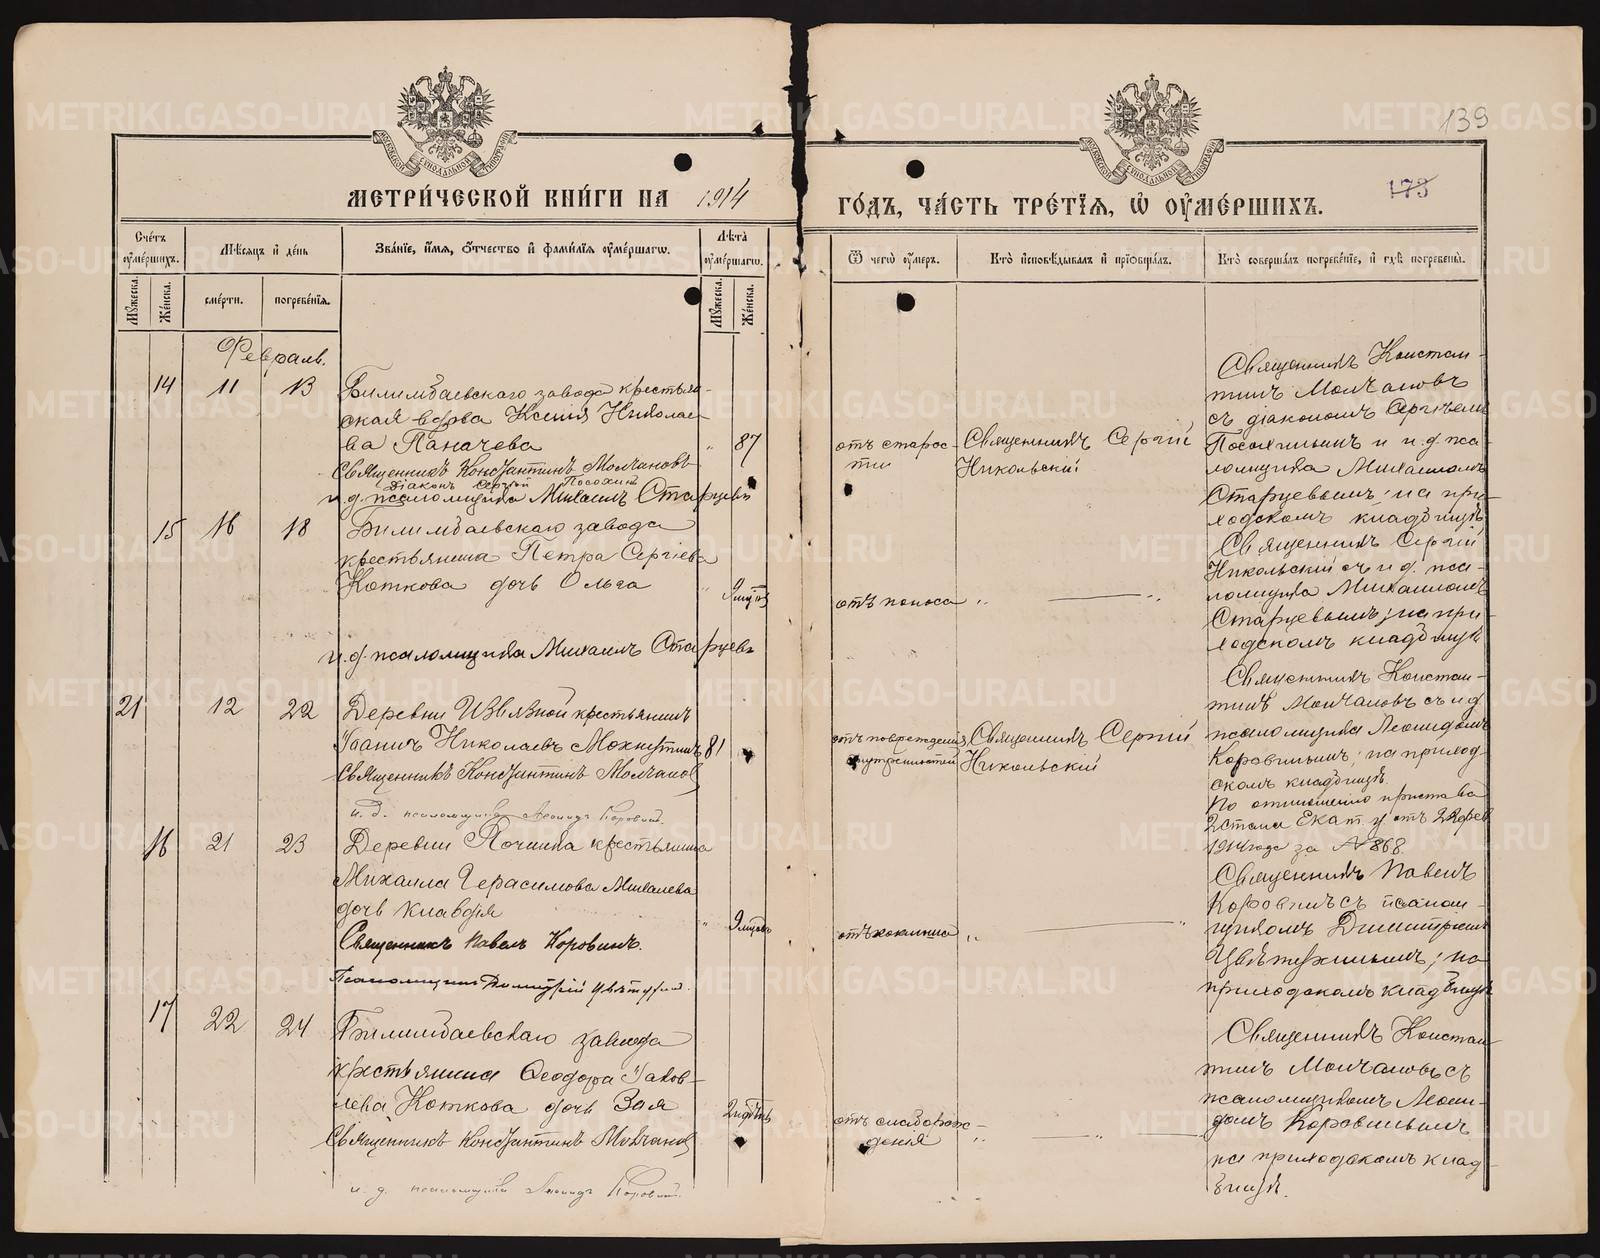 139
173
МЕТРИ́ЧЕСКОЙ КНИ́ГИ НА 1914 ГО́ДЪ, ЧА́СТЬ ТРЕ́ТІѦ, Ѡ҆ ОУ҆МЕ́РШИХЪ.
Сче́тъ оу҆ме́ршихъ.
Мѣ́сѧцъ и҆ де́нь
Зва́нїе, и҆́мѧ, ѻ҆́тчество и҆ фами́лїѧ оу҆ме́ршагѡ.
Лѣ́та оу҆ме́ршагѡ.
Ѿ чегѡ̀ оу҆́меръ.
Кто̀ и҆сповѣ́дывалъ и҆ прїѡбща́лъ.
Кто̀ соверша́лъ погребе́нїе, и҆ гдѣ̀ погребены̀.
Мꙋ́жеска.
Же́нска.
сме́рти.
погребе́нїѧ.
Мꙋ́жеска.
Же́нска.
Февраль.
14 11 13
Билимбаевскаго завода крестьян-
ская вдова Ксенія Николае-
ва Паначева
" 87
Священникъ Константинъ Молчановъ
Діаконъ Сергій Посохинъ
и.д. псаломщика Михаилъ Старцевъ
отъ старос-
ти
Священникъ Сергій
Никольскій
Священникъ Констан-
тинъ Молчановъ
съ діакономъ Сергіемъ
Посохинымъ и и.д. пса-
ломщика Михаиломъ
Старцевымъ; на при-
ходскомъ кладбищѣ
15 16 18
Билимбаевскаго завода
крестьянина Петра Сергіева
Коткова дочь Ольга
" 9 мцовъ
и.д. псаломщика Михаилъ Старцевъ
отъ поноса
" — "
Священникъ Сергій
Никольскій съ и.д. пса-
ломщика Михаиломъ
Старцевымъ; на при-
ходскомъ кладбищѣ
21 12 22
Деревни Извѣзной крестьянинъ
Іоаннъ Николаевъ Мохнуткинъ
81
Священникъ Константинъ Молчановъ
и. д. псаломщика Леонидъ Коровин.
отъ поврежденія
внутренностей
Священникъ Сергій
Никольскій
Священникъ Констан-
тинъ Молчановъ съ и.д.
псаломщика Леонидомъ
Коровинымъ; на приход-
скомъ кладбищѣ.
По отношенію пристава
2 стана Екат. у. отъ 22 фев.
1914 года за № 868.
16 21 23
Деревни Починка крестьянина
Михаила Герасимова Михалева
дочь Клавдія
" 9 мцовъ
Священникъ Павелъ Коровинъ.
Псаломщикъ Димитрій Цвѣтухин.
отъ коклюша
" — "
Священникъ Павелъ
Коровинъ съ псалом-
щикомъ Димитріемъ
Цвѣтухинымъ; на
приходскомъ кладбищѣ
17 22 24
Билимбаевскаго завода
крестьянина Ѳеодора Іаков-
лева Коткова дочь Зоя
2 недѣль
Священникъ Константинъ Молчановъ
и. д. псаломщика Леонидъ Коровин.
отъ слаборож-
денія
" — " —
Священникъ Констан-
тинъ Молчановъ съ
псаломщикомъ Леони-
домъ Коровинымъ
на приходскомъ клад-
бищѣ.